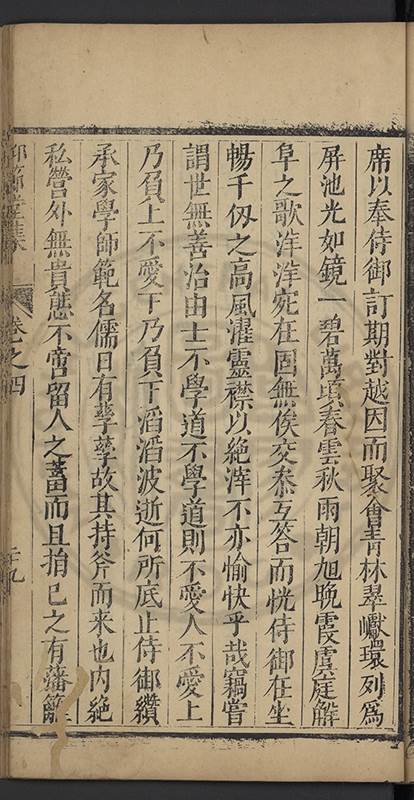 席以奉侍御訂期對越因而聚會青林翠巘環列為
屏池光如鏡一碧萬頃春雲秋雨朝旭晚霞虞庭解
阜之歌洋洋宛在固無俟交泰互答而恍侍御在坐
暢千仭之高風濯靈襟以絶滓不亦愉快乎哉竊嘗
謂世無善治由士不學道不學道則不愛人不愛上
乃負上不愛下乃負下滔滔波逝何所底止侍御纘
承家學師範名儒日有孳孳故其持斧而来也内絶
私營外無貴態不啻留人之蓄而且捐已之有藩籬
卷之四